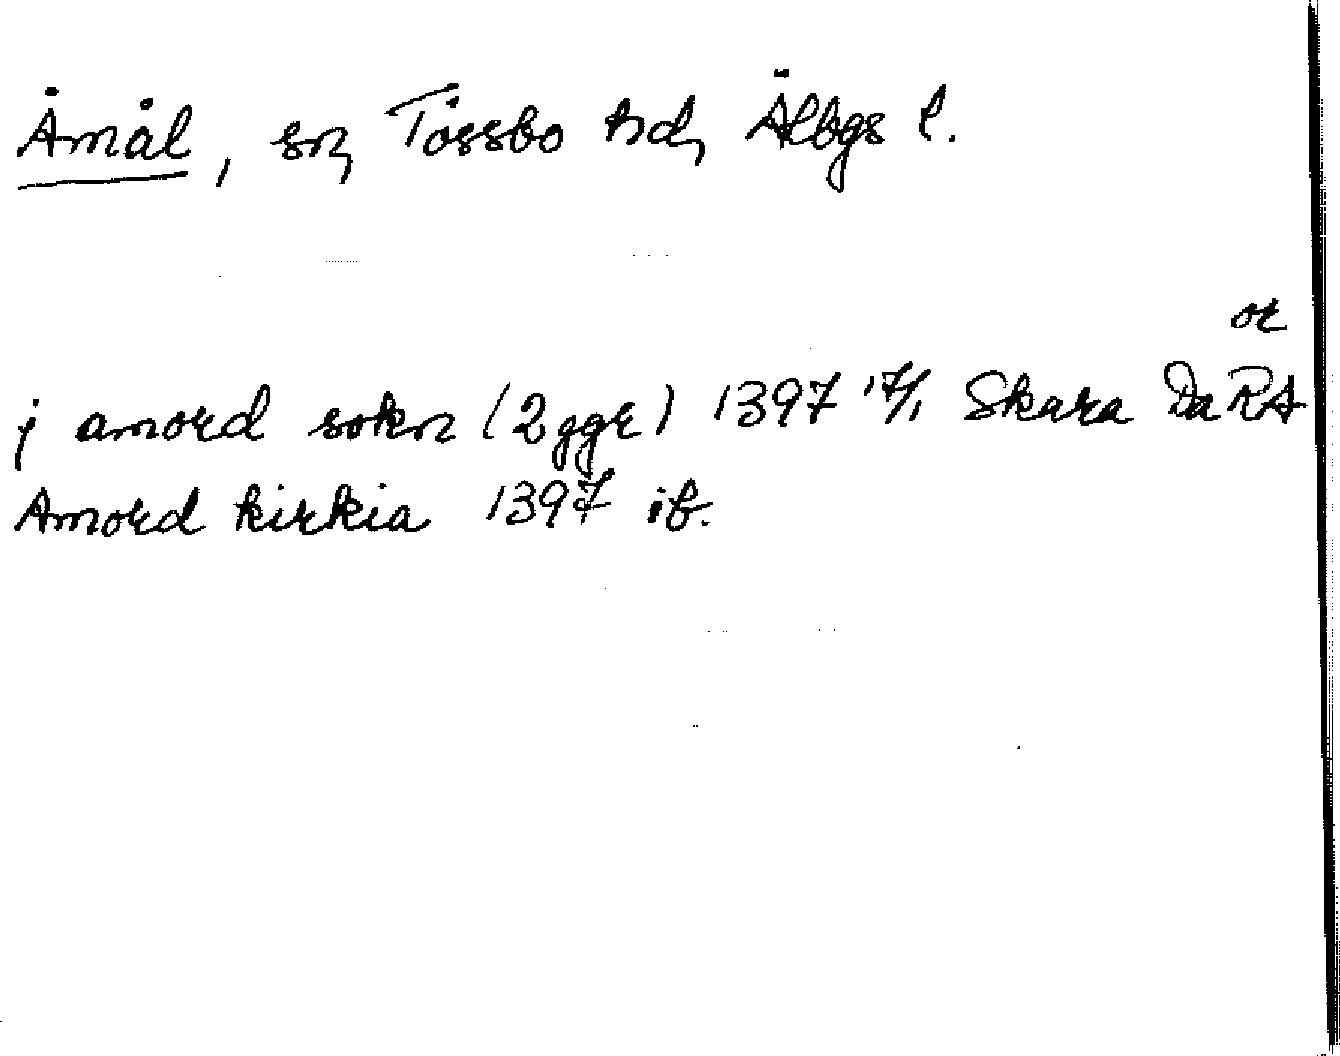 Åmål, sn, Tössbo hd, Älbgs l.
or
j amord sokn (2 ggr) 1397 17/1 Skara DaRA
Amord kirkia 1397 ib.